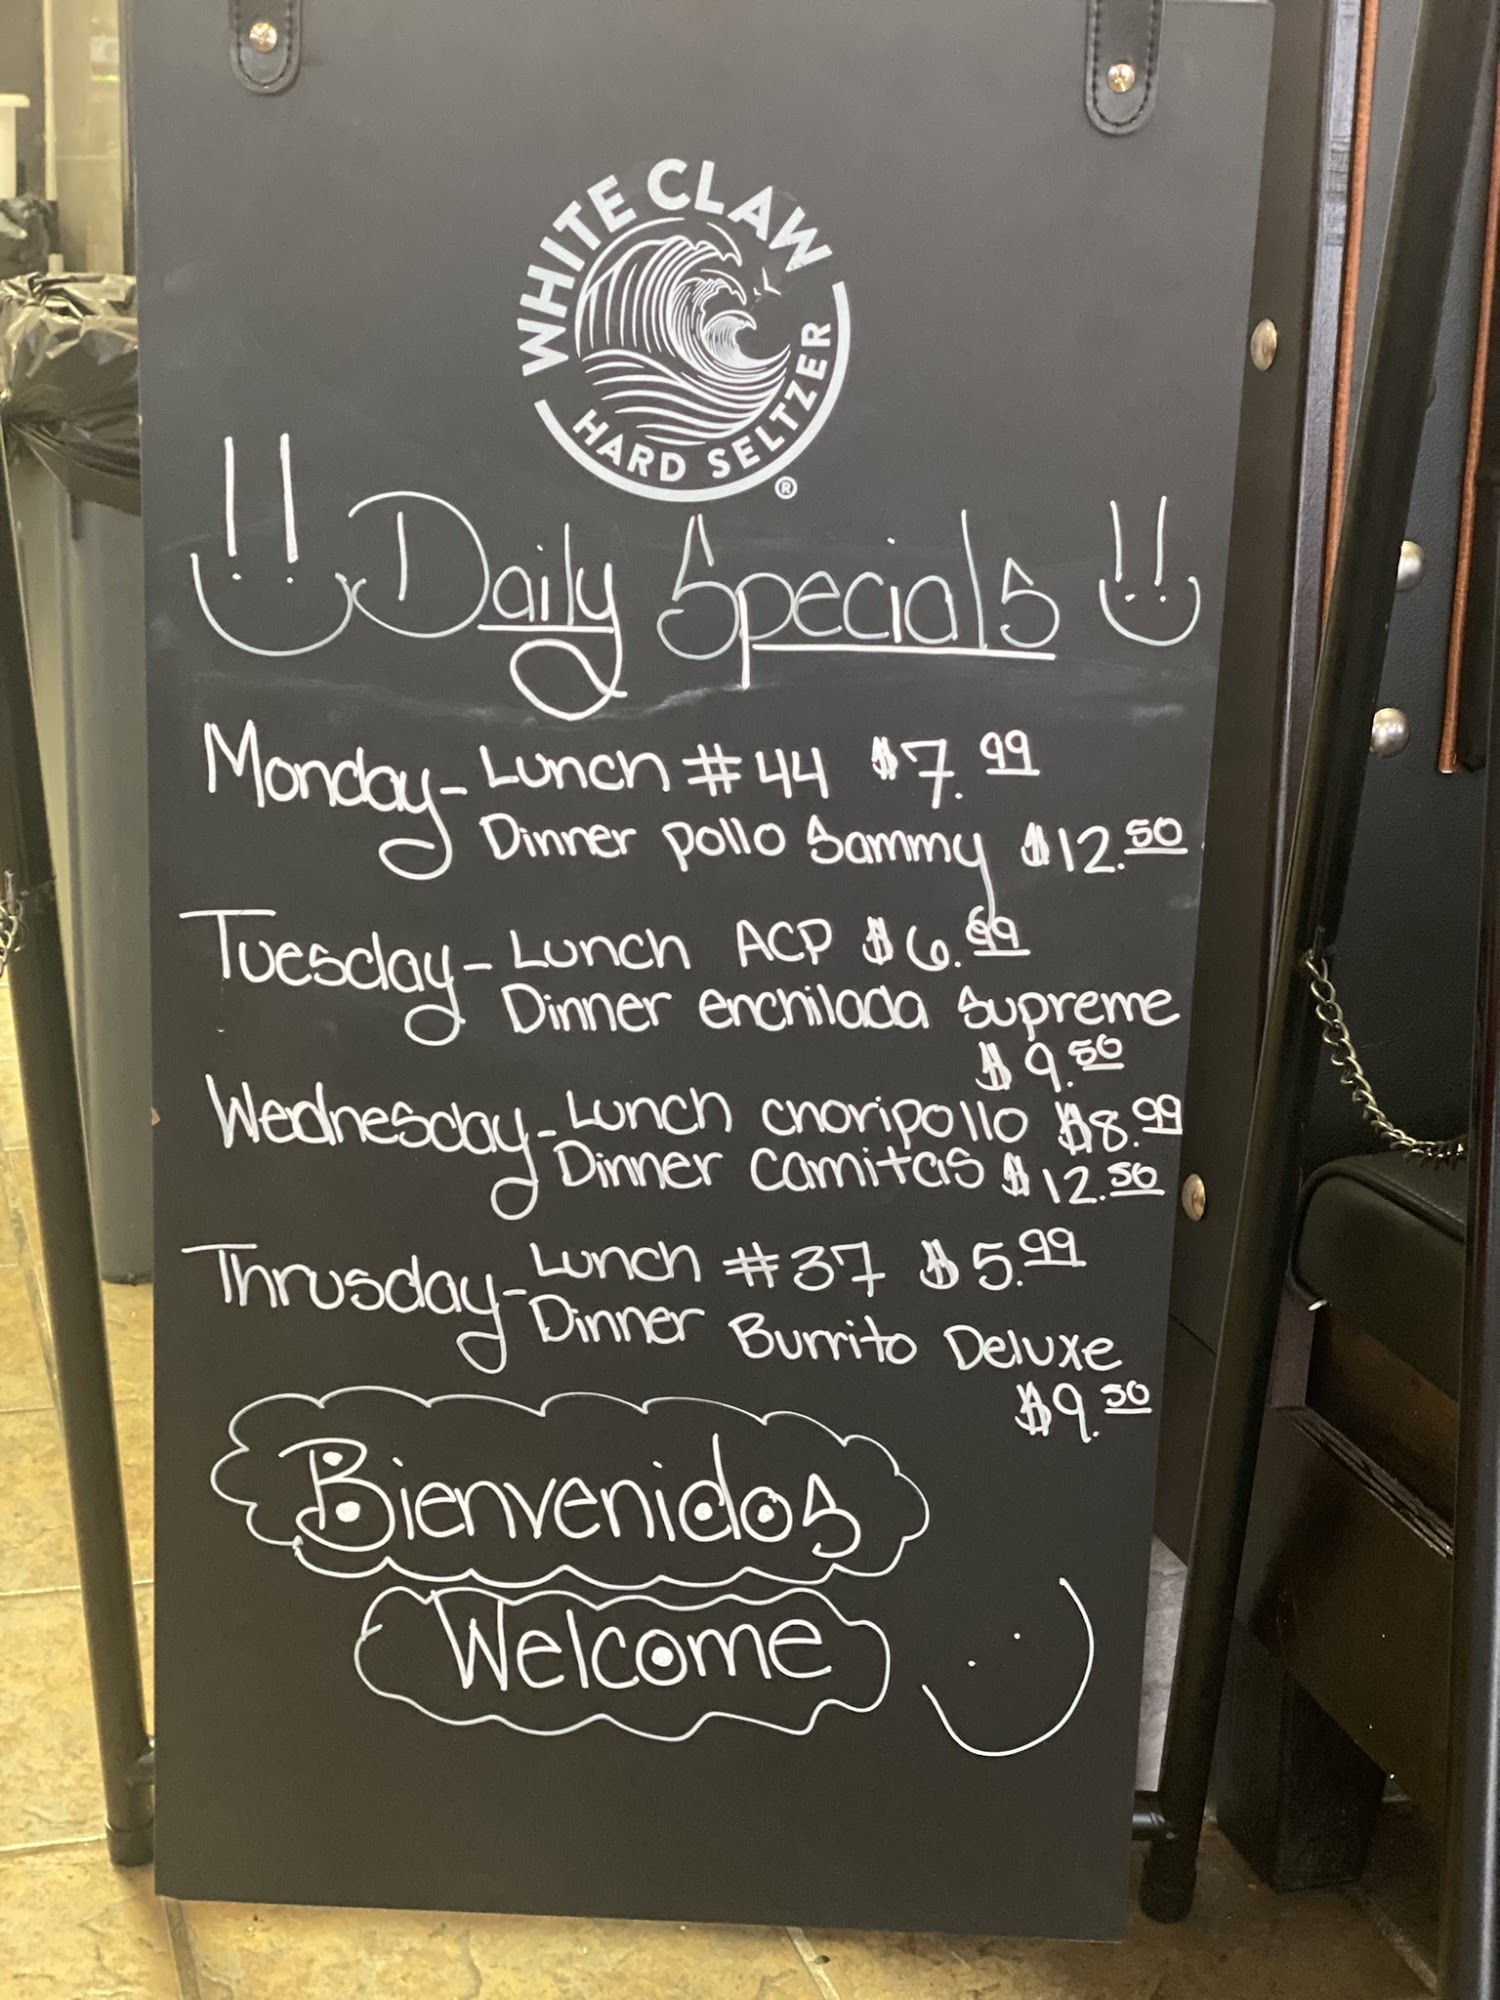 WHITE CLAW
HARD SELTZER
®
Daily Specials
Monday - Lunch #44 $7.99
Dinner pollo Sammy $12.50
Tuesday - Lunch ACP $6.99
Dinner enchilada Supreme
$9.50
Wednesday - Lunch choripollo $8.99
Dinner Carnitas $12.50
Thrusday - Lunch #37 $5.99
Dinner Burrito Deluxe
$9.50
Bienvenidos
Welcome